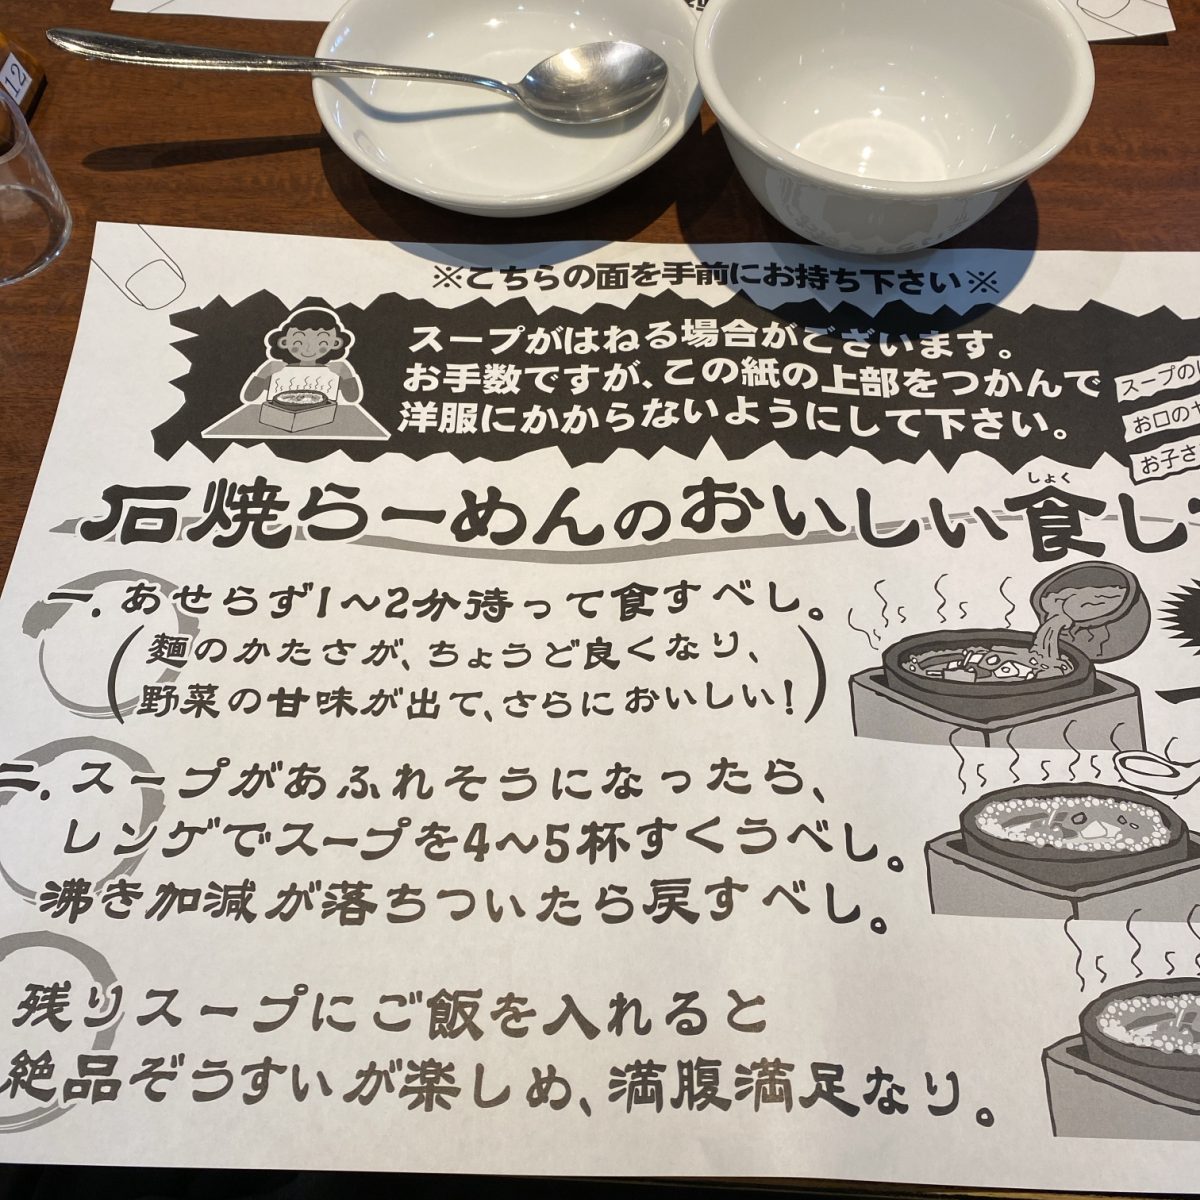 12
※こちらの面を手前にお持ち下さい※
スープがはねる場合がございます。
お手数ですが、この紙の上部をつかんで
洋服にかからないようにして下さい。
スープの
お口の
お子さ
しょく
石焼らーめんのおいしい食し
一．あせらず1～2分待って食すべし。
（麺のかたさが、ちょうど良くなり、
野菜の甘味が出て、さらにおいしい！）
二．スープがあふれそうになったら、
レンゲでスープを4～5杯すくうべし。
沸き加減が落ちついたら戻すべし。
残りスープにご飯を入れると
絶品ぞうすいが楽しめ、満腹満足なり。